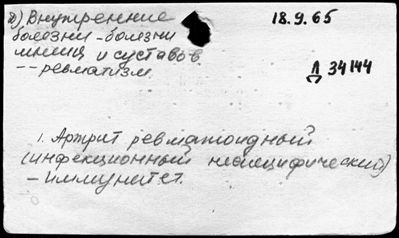 а) Внутренние
болезни - болезни
мышц и суставов
-- ревматизм.
18.9.65
Д 34144
1. Артрит ревматоидный
(инфекционный неспецифический)
- Иммунитет.